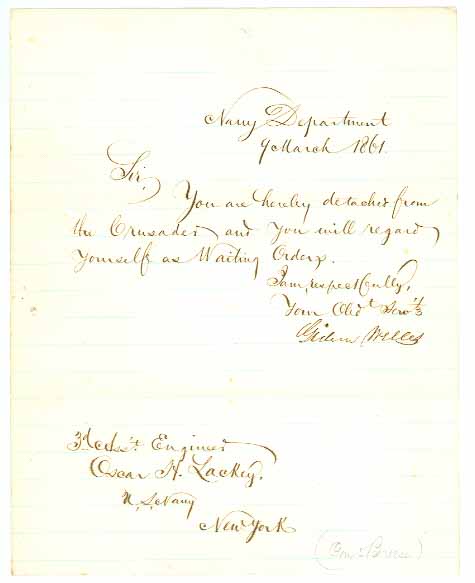 Navy Department
9 March 1861.
Sir,
You are hereby detached from
the Crusader and you will regard
yourself as Waiting Orders.
I am, respectfully,
Your Obdt Servt
Gideon Welles
3d Asst. Engineer
Oscar H. Lackey,
U.S. Navy
New York